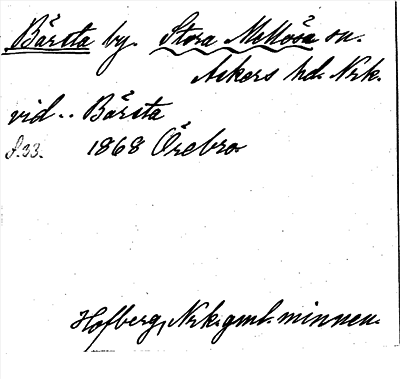 Bärsta by. Stora Mellösa sn.
Askers hd. Nrk.
vid .. Bärsta
S.33. 1868 Örebro
Hofberg, Nrk. gml. minnen.